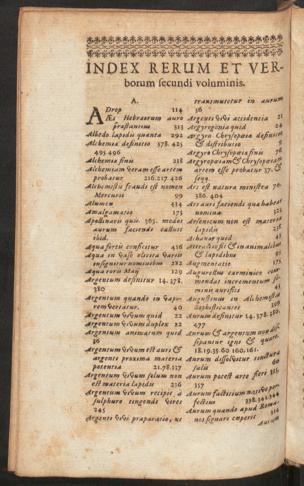 INDEX RERUM ET VER-
borum secundi voluminis.
A.
ADrop 114
Æs Hebræorum auro
præstantius 313
Albedo lapidis quanta 292
Alchemia definitio 378. 425
495. 496
Alchemiæ finis 218
Alchemiam veram esse artem
probatur 216. 217. 426
Alchemistis fraudi est nomen
Mercurii 99
Alumen 434
Amalgamatio 175
Apollinaris quis 365. modus
aurum faciendi callius
ibid.
Aqua fortis conficitur 416
Aqua in vase electa variis
insignitur nominibus 282
Aqua roris Maij 129
Argentum definitur 14. 378.
380
Argentum quando in vapo-
rem vertatur. 40
Argentum vivum quid 22
Argentum vivum duplex 32
Argentum animatum quid
36
Argentum vivum est auri &
argenti proxima materia
potentia 21. 78. 127
Argentum vivum solum non
est materia lapidis 216
Argentum vivum recipit à
sulphure tingendi vires
245
Argenti vivi præparatio, ut
transmutetur in aurum
36
Argenti vivi accidentia 21
Argyrogonia quid 24
Argyro Chrysopœa definitio
& distributio 8
Argyro Chrysopœa finis 78
Argyropœiam & Chrysopœiam
artem esse probatur 37. &
seqq.
Ars est naturæ ministra 76.
386. 404
Ars auri faciendi quæ habeat
nomina 328
Arsenicum non est materia
lapidis 238
Athanar quid 45
& in animalibus
& lapidibus 92
Augmentatio 175
Augurellus carminice com-
mendat incrementum se-
minis aurifici 45
Augustinus in Alchemistas
109
Aurum definitur 14. 378. 382.
477
Aurum & argentum non dis-
crepant igne & quare.
18. 19. 35. 60. 160. 161.
Aurum dissolvitur
salis 60
Aurum potest arte fieri 325.
357
Aurum factitium nativo per-
fectius 338. 341. 344
Aurum quando apud Roma-
nos signari cœperit 314
Aurum